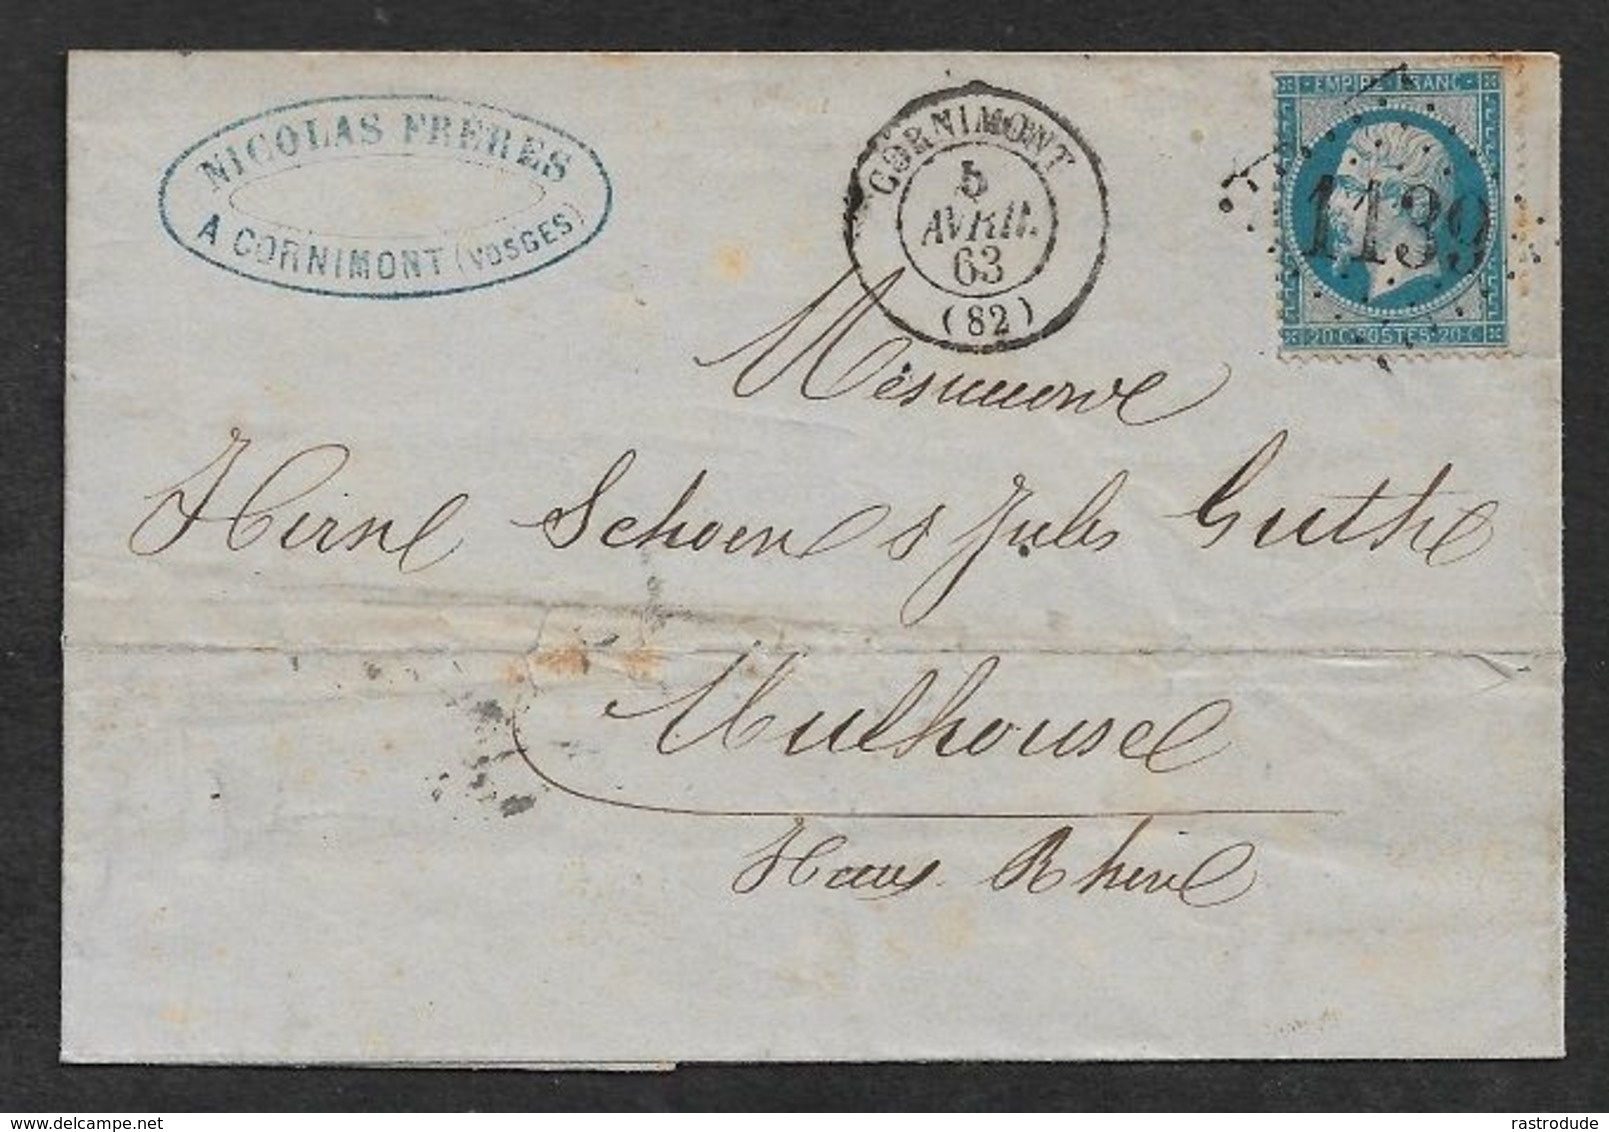 NICOLAS FRERES
A CORNIMONT (VOSGES)
CORNIMONT
5
AVRIL
63
(82)
EMPIRE FRANC
1139
20 C POSTES 20 C
Schoen & Jules Guth
Mulhouse
Haut Rhin
delcampe.net
rastrodude